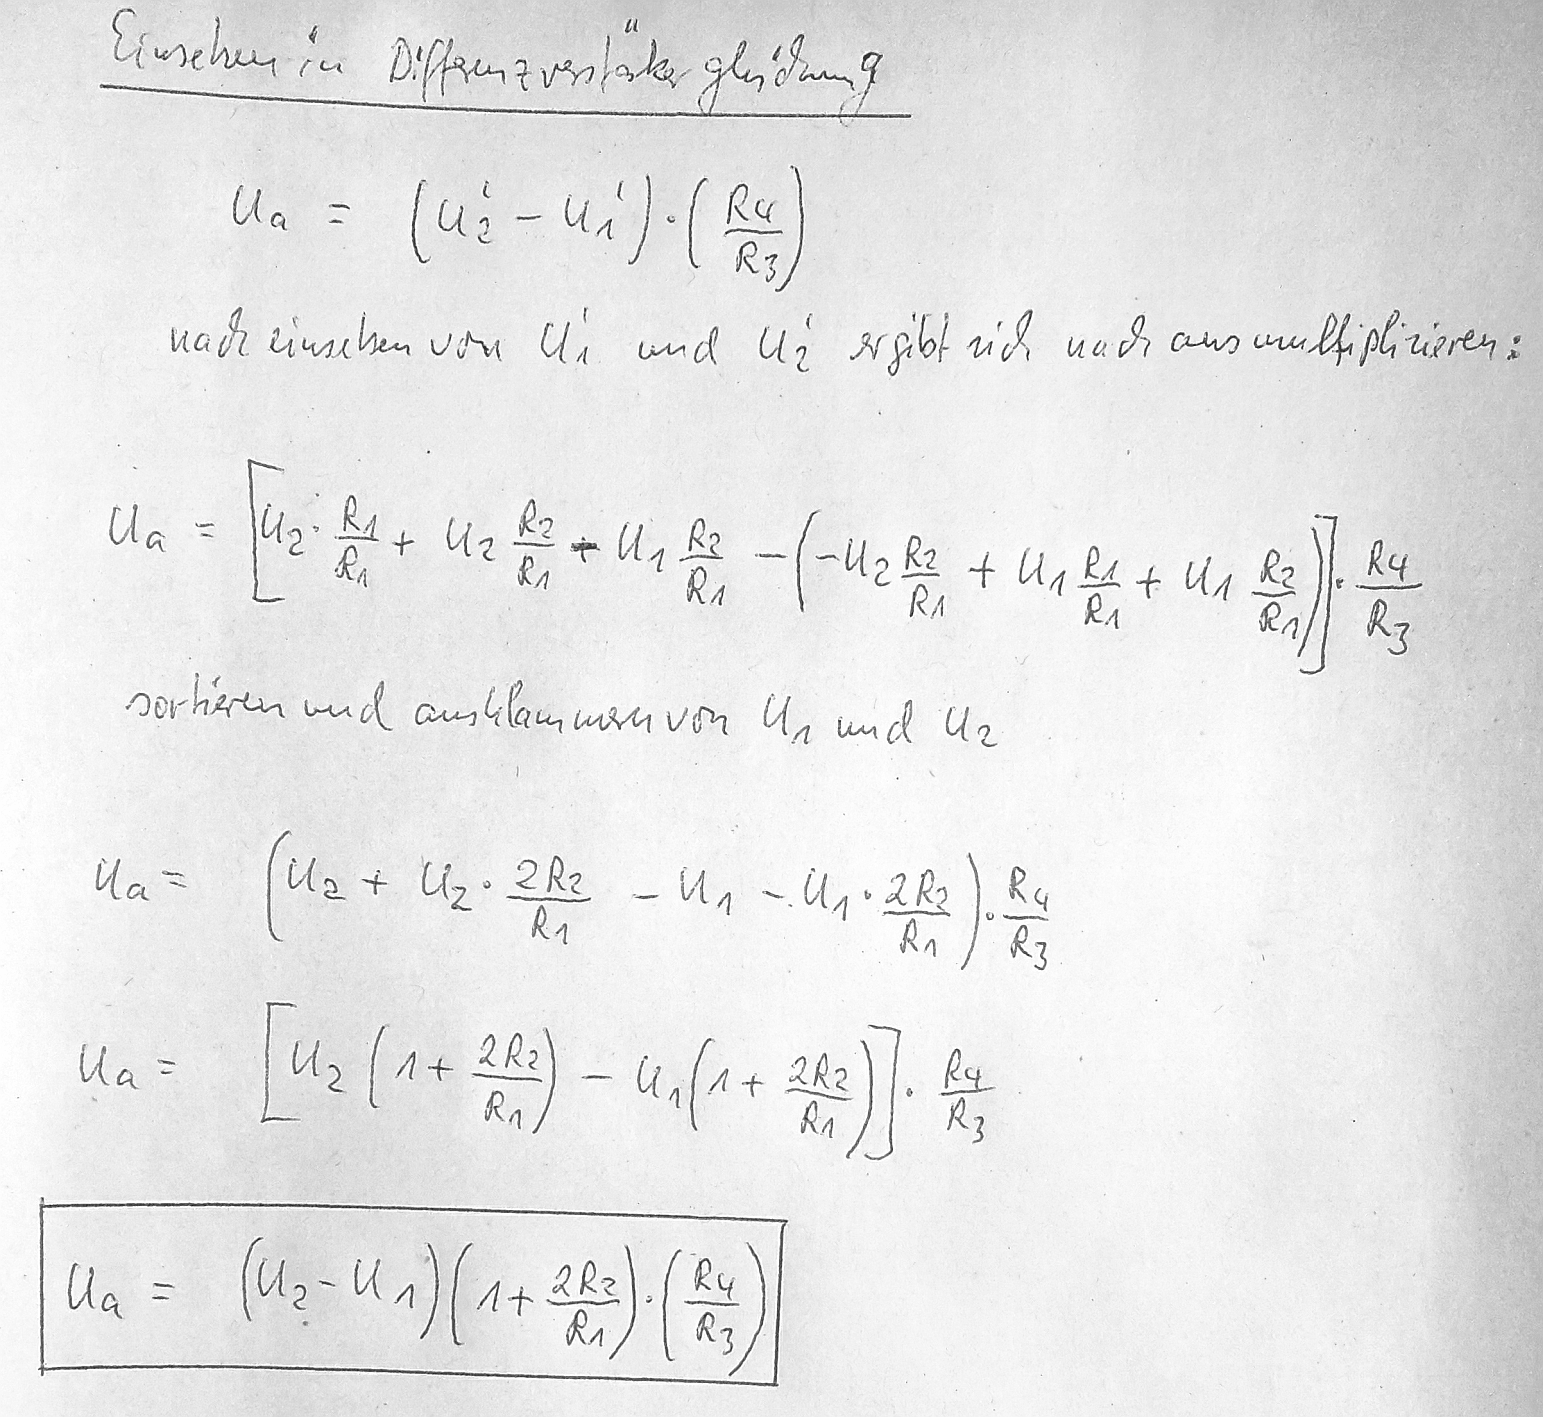 Einsetzen in Differenzverstärkergleichung
Ua = (U2' - U1') · (R4/R3)
nach einsetzen von U1' und U2' ergibt sich nach ausmultiplizieren:
Ua = [U2 · R1/R1 + U2 R2/R1 - U1 R2/R1 - (-U2 R2/R1 + U1 R1/R1 + U1 R2/R1)] · R4/R3
sortieren und ausklammern von U1 und U2
Ua = (U2 + U2 · 2R2/R1 - U1 - U1 · 2R2/R1) · R4/R3
Ua = [U2 (1 + 2R2/R1) - U1 (1 + 2R2/R1)] · R4/R3
Ua = (U2 - U1) (1 + 2R2/R1) · (R4/R3)